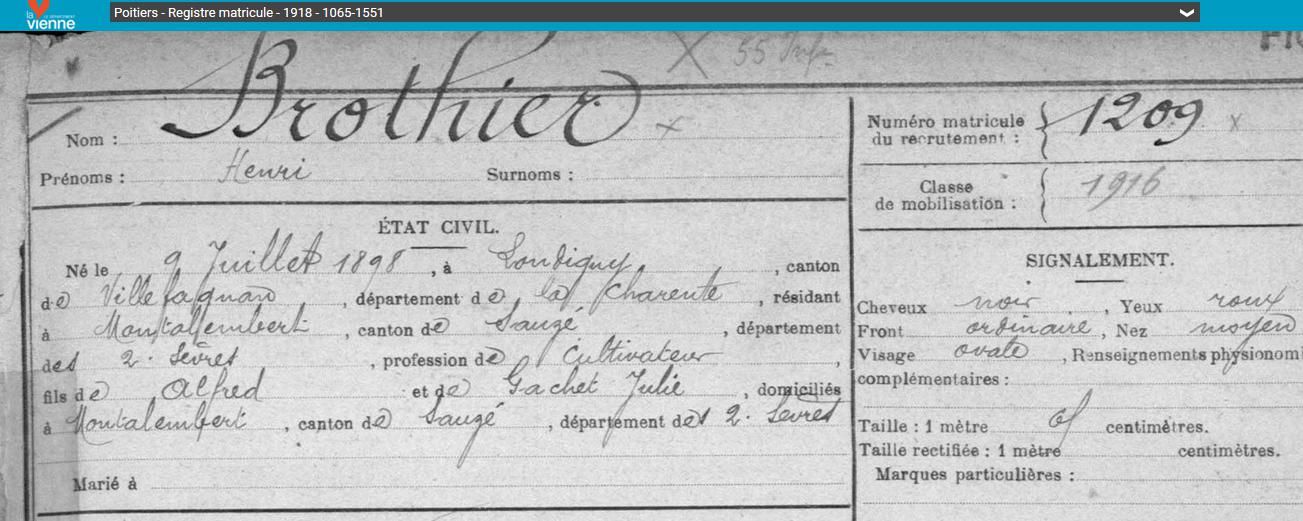 la vienne
Poitiers - Registre matricule - 1918 - 1065-1551
X 55
Nom : Brothier x
Prénoms : Henri Surnoms :
Numéro matricule du recrutement : 1209 x
Classe de mobilisation : 1916
ÉTAT CIVIL.
Né le 9 Juillet 1898, à Londigny, canton
de Villefagnan, département de la Charente, résidant
à Montalembert, canton de Sauzé, département
des 2. Sèvres, profession de Cultivateur,
fils de Alfred et de Gachet Julie, domiciliés
à Montalembert, canton de Sauzé, département des 2. Sèvres
Marié à
SIGNALEMENT.
Cheveux noir, Yeux roux
Front ordinaire, Nez moyen
Visage ovale, Renseignements physionom
complémentaires :
Taille : 1 mètre centimètres.
Taille rectifiée : 1 mètre centimètres.
Marques particulières :